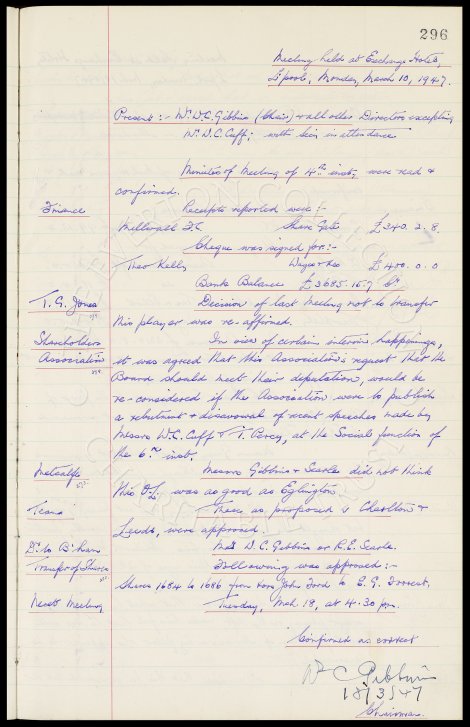 296
Meeting held at Exchange Hotel,
L'pool, Monday, March 10, 1947.
Present :- Mr. W.C. Gibbins (Chair) & all other Directors excepting
Mr. W.C. Cuff; with Secy in attendance
Minutes of Meeting of 4th inst, were read &
confirmed.
Finance
Receipts reported were :-
Millwall F.C Share Gate £340. 2. 8.
Cheque was signed for :-
Theo Kelly Wages & Co £400. 0. 0
Bank Balance £3685. 16. 7 Cr
T. G. Jones
Decision of last Meeting not to transfer
this player was re-affirmed.
Shareholders
Association
In view of certain interim happenings,
it was agreed that this Association's request that the
Board should meet their deputation, would be
re-considered if the Association were to publish
a rebutment & disavowal of recent speeches made by
Messrs W.C. Cuff & T. Percy, at the Social function of
the 6th inst.
Metcalfe
Messrs Gibbins & Searle did not think
this O.L. was as good as Eglington
Teams
These as proposed v Charlton &
Leeds, were approved.
Dr. to B'ham
Messrs W. C. Gibbins or R.E. Searle.
Transfer of Shares
Following was approved :-
Shares 1684 to 1686 from John Ford to E. G. Forrest.
Next Meeting
Tuesday, Mch 18, at 4.30 pm.
Confirmed as correct
W C Gibbins
18/3/47
Chairman.